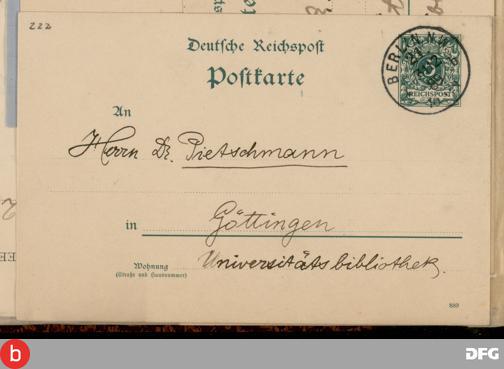 222
Deutsche Reichspost
Postkarte
BERLIN N.W.
REICHSPOST
An
Herrn Dr. Pietschmann
in Göttingen
Universitätsbibliothek.
Wohnung
(Straße und Hausnummer)
889
b
DFG